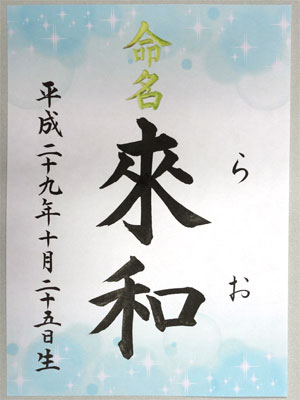 命名
來和
らお
平成二十九年十月二十五日生